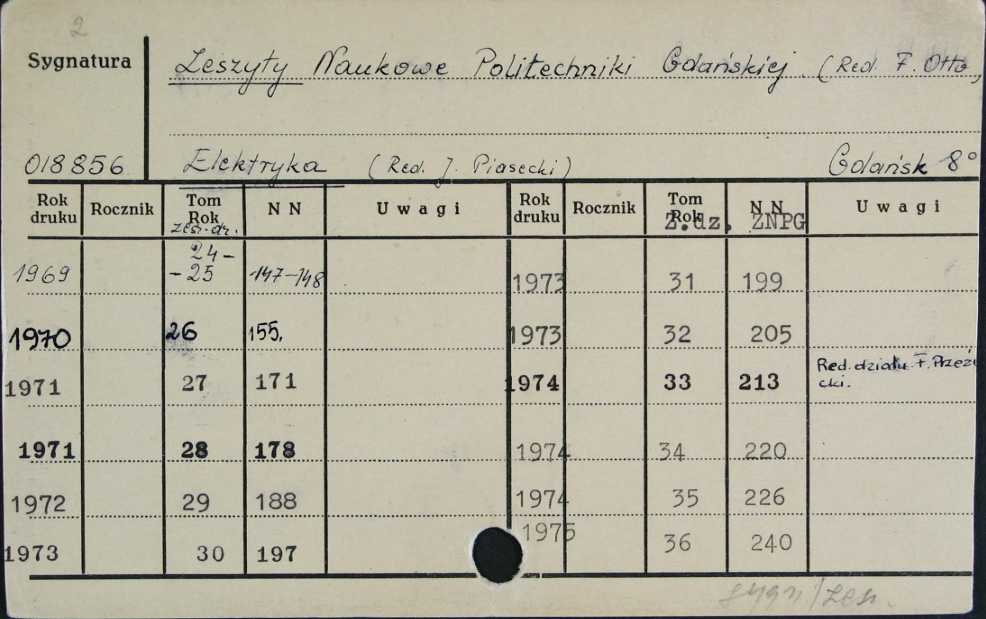 2
Sygnatura
Zeszyty Naukowe Politechniki Gdańskiej. (Red. F. Otto,
018856 Elektryka (Red. J. Piasecki) Gdańsk 8°
Rok druku Rocznik Tom Rok zesz.dz. NN Uwagi Rok druku Rocznik Tom Rok Z.dz. NN ZNPG Uwagi
1969 24-25 147-148 1973 31 199
1970 26 155, 1973 32 205
1971 27 171 1974 33 213 Red. działu F. Przeździ
cki.
1971 28 178 1974 34 220
1972 29 188 1974 35 226
1973 30 197 1975 36 240
sygn/zesz.